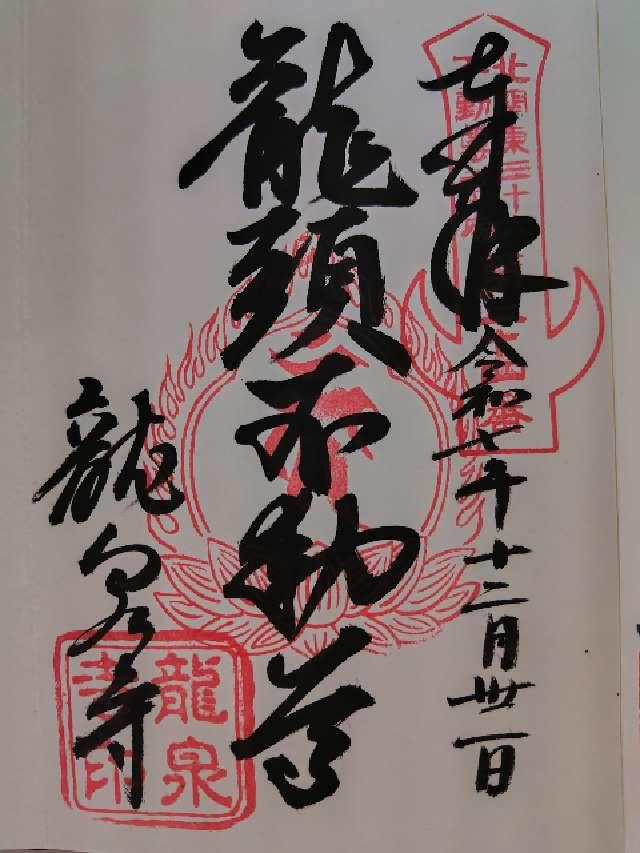 奉拝
令和七年十二月卅一日
龍頭不動尊
龍泉寺
北関東三十六
不動尊
番
龍泉
寺印